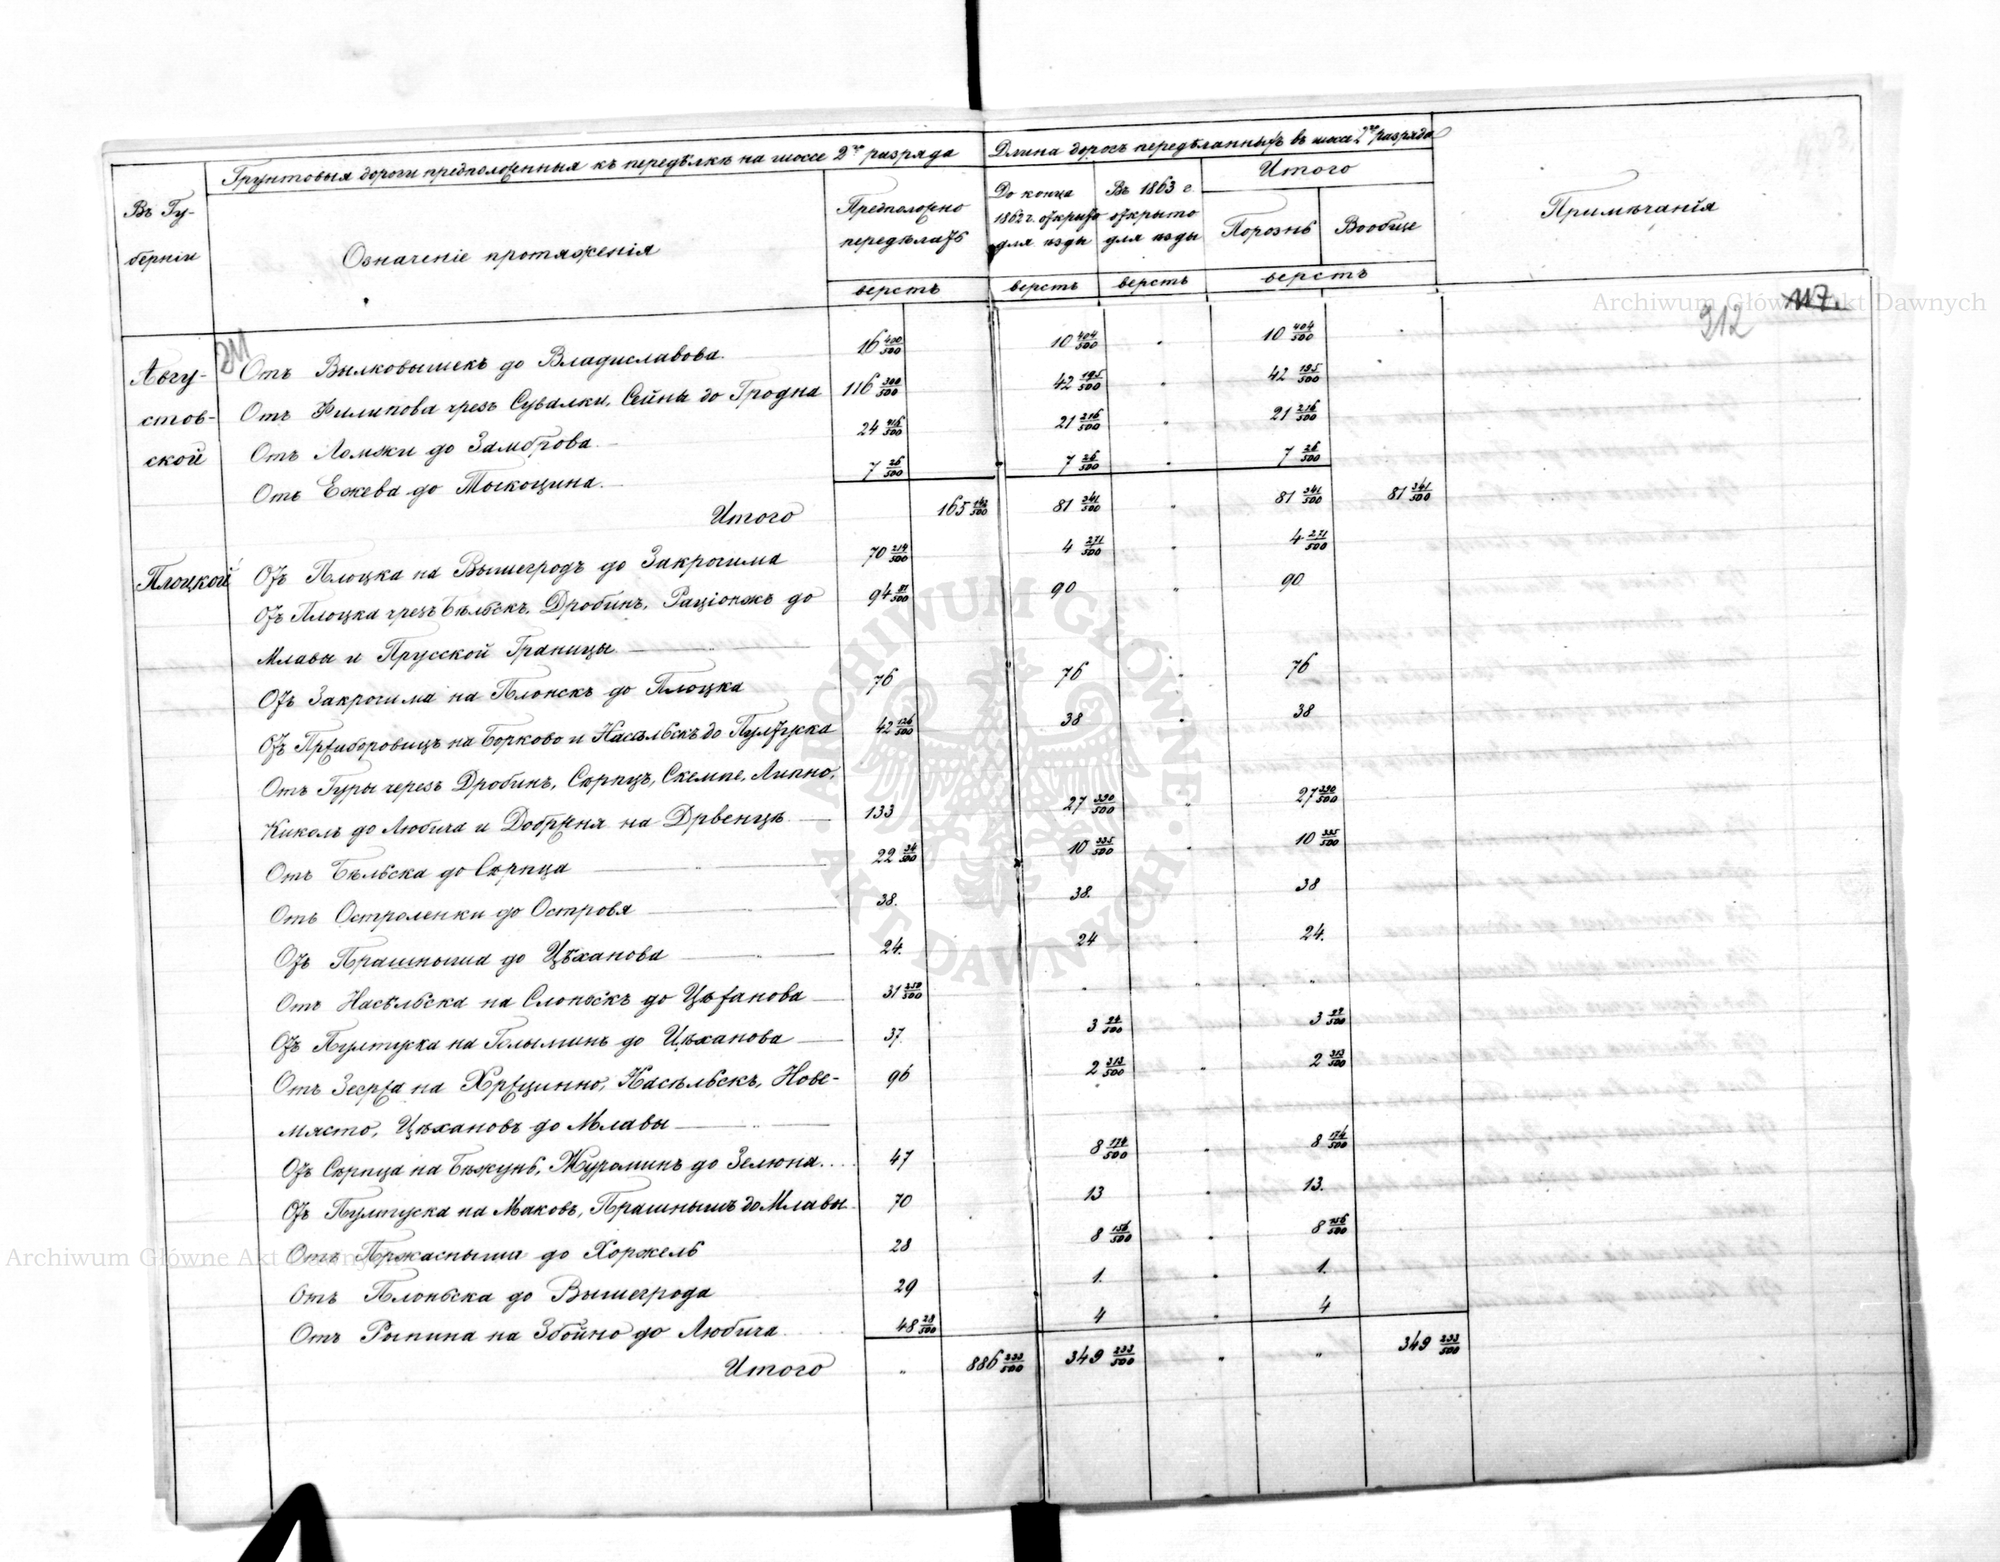 Грунтовыя дороги предположенныя къ передѣлкѣ на шоссе 2го разряда
Длина дорогъ передѣланныхъ въ шоссе 2го разряда
Въ Гу-
берніи
Означеніе протяженія
Предположено
передѣлать
До конца
1862 г. открыто
для ѣзды
Въ 1863 г
открыто
для ѣзды
Итого
Порознь
Вообще
Примѣчанія
верстъ
верстъ
верстъ
верстъ
311
312
117.
Авгу-
стов-
ской
Отъ Вылковышекъ до Владиславова. 16 400/500 10 404/500 " 10 404/500
Отъ Филипова чрезъ Сувалки, Сейны до Гродна 116 300/500 42 195/500 " 42 195/500
Отъ Ломжи до Замброва. 24 416/500 21 216/500 21 216/500
Отъ Ежева до Тыкоцина. 7 26/500 7 26/500 " 7 26/500
Итого 165 142/500 81 341/500 " 81 341/500 81 341/500
Плоцкой
Отъ Плоцка на Вышегродъ до Закрочима 70 214/500 4 271/500 " 4 271/500
Отъ Плоцка чрезъ Бѣльскъ, Дробинъ, Раціонжъ до 94 81/500 90 " 90
Млавы и Прусской Границы
Отъ Закрочима на Плонскъ до Плоцка 76 76 " 76
Отъ Пржиборовицъ на Борково и Насѣльскъ до Пултуска 42 126/500 38 " 38
Отъ Гуры черезъ Дробинъ, Серпцъ, Скемпе, Липно,
Киколь до Любича и Добржиня на Дрвенцѣ 133 27 390/500 " 27 390/500
Отъ Бѣльска до Сѣрпца 22 34/500 10 335/500 " 10 335/500
Отъ Остроленки до Острова 38. 38. 38
Отъ Прашныша до Цѣханова 24. 24 " 24.
Отъ Насѣльска на Слонскъ до Цѣханова 31 250/500 " " "
Отъ Пултуска на Голыминъ до Цѣханова 37. 3 24/500 3 24/500
Отъ Згержа на Хрщинно, Насѣльскъ, Нове- 96 2 313/500 " 2 313/500
място, Цѣхановъ до Млавы
Отъ Сѣрпца на Бѣжунь, Журоминъ до Зелюна. 47 8 174/500 " 8 174/500
Отъ Пултуска на Маковъ, Прашнышъ до Млавы 70 13 " 13.
Отъ Пржасныша до Хоржель 28 8 156/500 " 8 156/500
Отъ Плоньска до Вышегрода 29 1. " 1.
Отъ Рыпина на Збойно до Любича 48 28/500 4 " 4
Итого " 886 233/500 349 233/500 " " 349 233/500
Archiwum Główne Akt Dawnych
Archiwum Główne Akt Dawnych
ARCHIWUM GŁÓWNE · AKT DAWNYCH ·